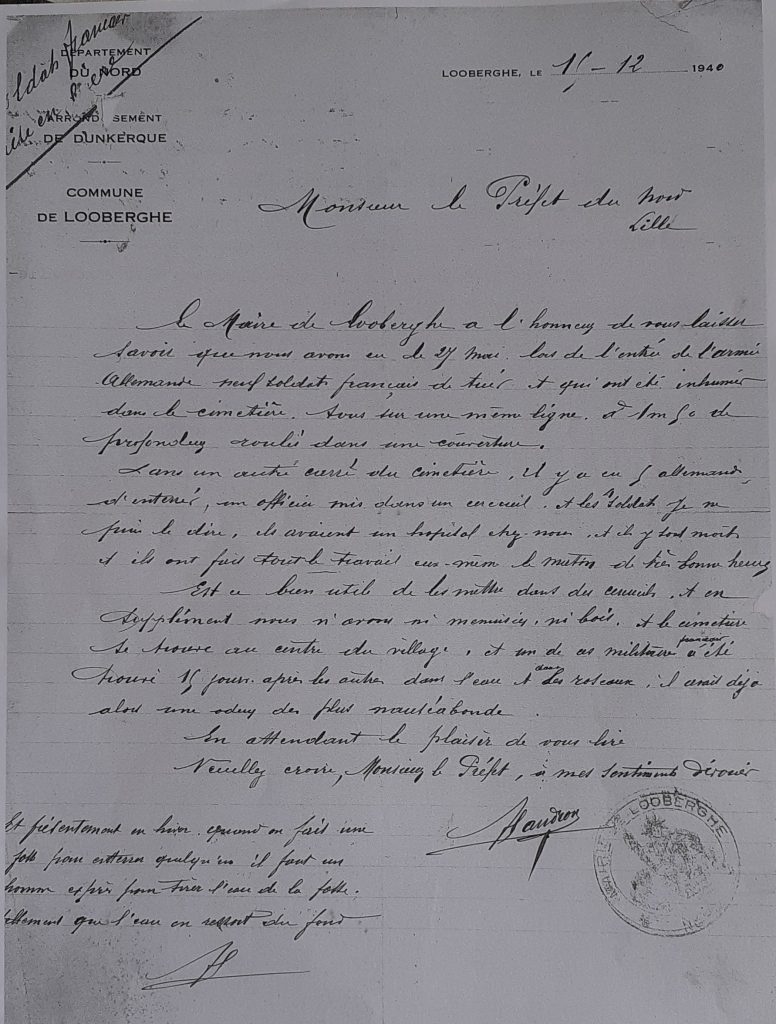 DÉPARTEMENT
DU NORD
ARRONDISSEMENT
DE DUNKERQUE
COMMUNE
DE LOOBERGHE
LOOBERGHE, LE 15 - 12 1940
Monsieur le Préfet du Nord
Lille
Le Maire de Looberghe a l'honneur de vous laisser
savoir que nous avons eu le 27 mai. lors de l'entrée de l'armée
Allemande neuf soldats français de tués et qui ont été inhumés
dans le cimetière. Tous sur une même ligne. à 1m50 de
profondeur roulés dans une couverture.
Dans un autre carré du cimetière, il y a eu 5 allemands
d'enterrés, un officier mis dans un cercueil. et les 4 soldats je ne
puis le dire, ils avaient un hopital chez nous. et ils y sont morts
et ils ont fait tout le travail eux-même le matin de très bonne heure
Est ce bien utile de les mettre dans des cercueils, et en
supplément nous n'avons ni menuisier, ni bois. et le cimetière
se trouve au centre du village, et un de ces militaires français a été
trouvé 15 jours après les autres dans l'eau et dans les roseaux, il avait déjà
alors une odeur des plus nauséabonde.
En attendant le plaisir de vous lire
Veuillez croire, Monsieur le Préfet, à mes sentiments dévoués
Et présentement en hiver quand on fait une
fosse pour enterrer quelqu'un il faut un
homme exprès pour tirer l'eau de la fosse.
tellement que l'eau en ressort du fond
MAIRIE DE LOOBERGHE
NORD